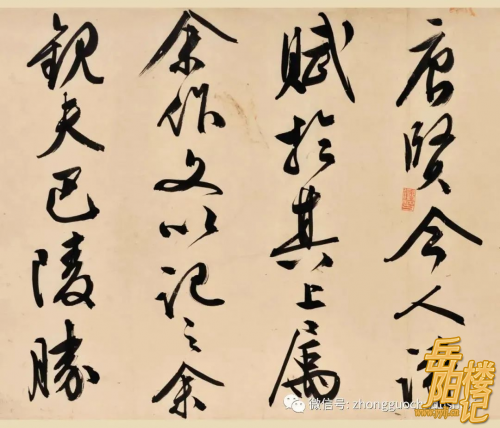 唐贤今人诗
賦於其上属
余作文以记之余
観夫巴陵勝
岳阳楼记
微信号: zhongguoch